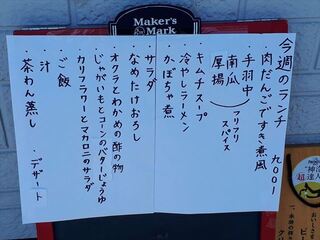 Maker's
Mark
今週のランチ 九〇〇1
肉だんごですき煮風
・手羽中
南瓜
厚揚
フリフリ
スパイス
・キムチスープ
・冷やしラーメン
・かぼちゃ煮
・サラダ
・なめたけおろし
・オクラとわかめの酢の物
・じゃがいもとコーンのバターじょうゆ
・カリフラワーとマカロニのサラダ
・ご飯
・汁
・茶わん蒸し
・デザート